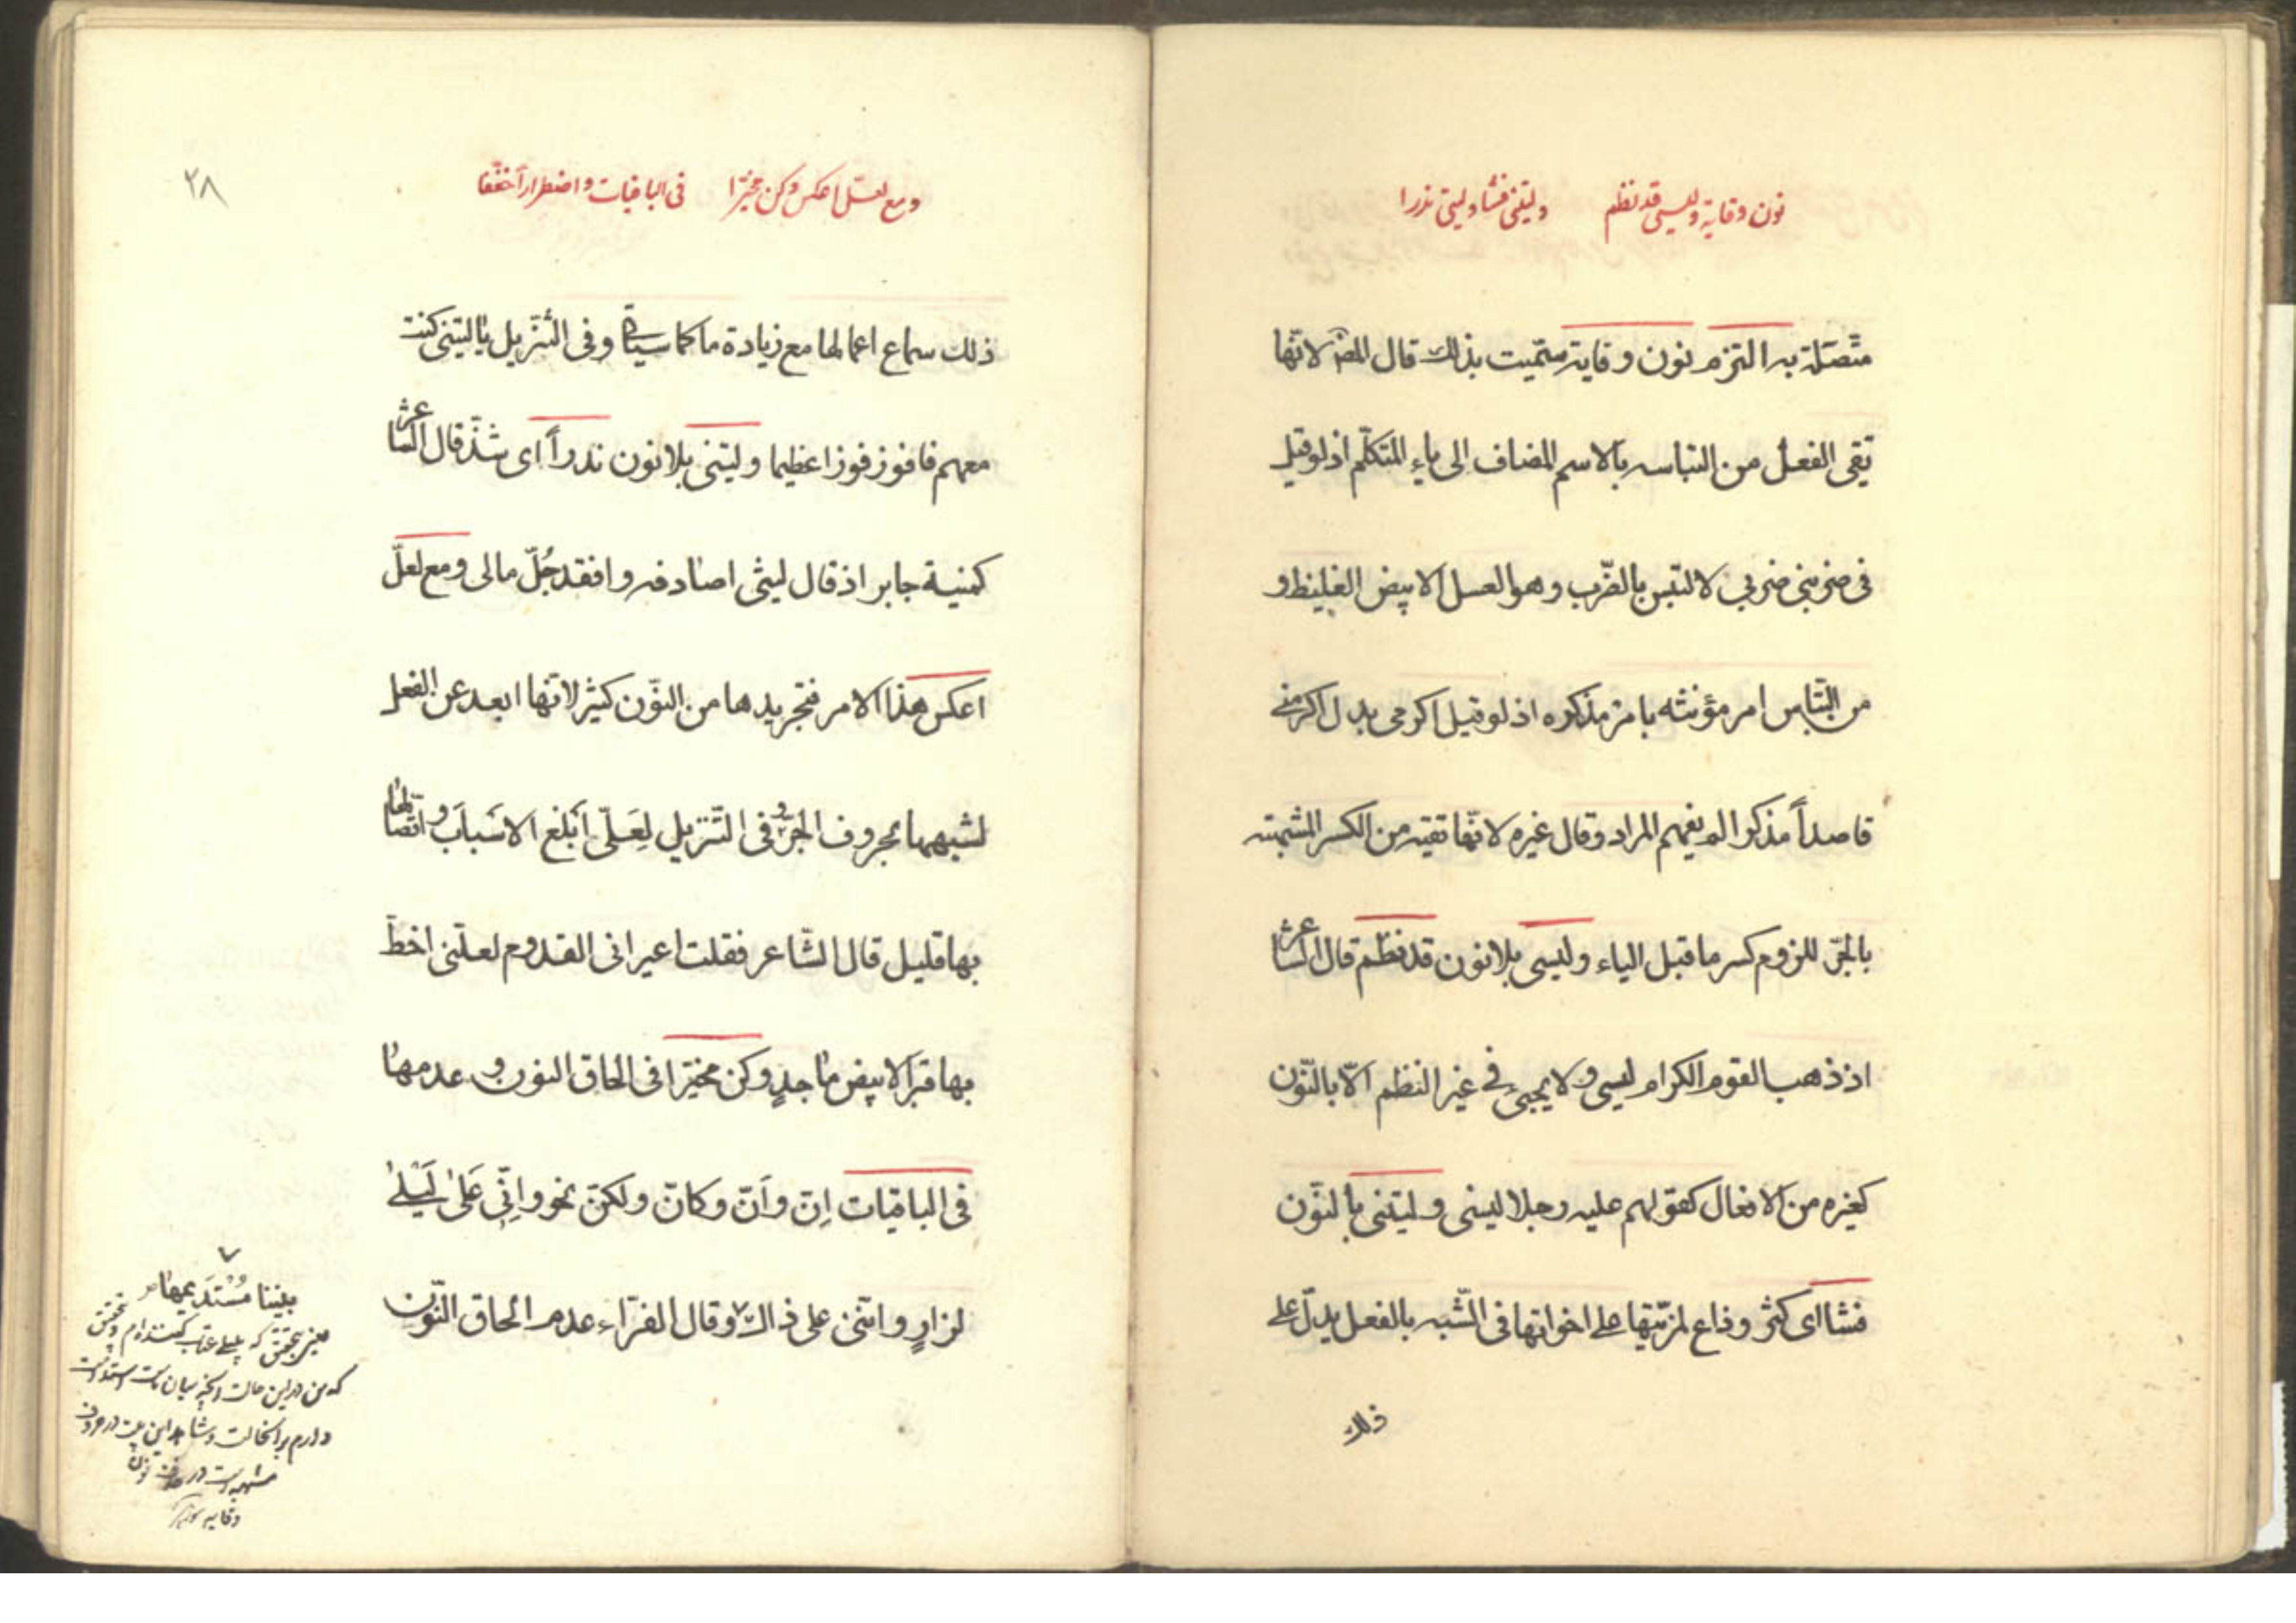 نون وقاية وليسي قد نظم وليتني فشا وليتي ندرا
متصلة به التزم نون وقاية سميت بذلك قال المص لانها
تقى الفعل من التباسه بالاسم المضاف الى ياء المتكلم اذ لو قيل
فى ضربنى ضربي لالتبس بالضّرب وهو العسل الابيض الغليظ و
من التباس امر مؤنثه بامر مذكره اذ لو قيل اكرمى بدل اكرمنے
قاصداً مذكرا لم يفهم المراد وقال غيره لانّها تقيه من الكسر المشبه
بالجرّ للزوم كسر ما قبل الياء وليسى بلا نون قد نظم قال الشاعر
اذ ذهب القوم الكرام ليسى ولا يجيئ فے غير النظم الّا بالنّون
كغيره من الافعال كقولهم عليه رجلا ليسنى وليتنى بالنّون
فشا اى كثر وذاع لمزيّتها على اخواتها فى الشّبه بالفعل يدلّ على
ذلك
٢٨
ومع لعلّ اعكس وكن مخيّرا فى الباقيات واضطرارا خففا
ذلك سماع اعمالها مع زيادة ما كما سيأتى وفى التّنزيل يا ليتنى كنت
معهم فافوز فوزا عظيما وليتى بلا نون ندراً اى شذّ قال الشاعر
كمنية جابر اذ قال ليتى اصادفه وافقد جُلّ مالى ومع لعلّ
اعكس هذا الامر فتجريدها من النّون كثير لانّها ابعد عن الفعل
لشبهها بحروف الجرّ وفى التّنزيل لَعَلّى اَبلغ الاسَبابَ واتّصالها
بها قليل قال الشّاعر فقلت اعيرانى القدوم لعلّنى اخطّ
بها قبرا لابيض ماجدٍ وكن مخيّرا فى الحاق النون وعدمها
فى الباقيات اِنّ واَنّ وكانّ ولكنّ نحو واِنّى عَلى لَيْلےٰ
لزارٍ وانّنى على ذاك وقال الفرّاء عدم الحاق النّون
٧
بيننا مُسْتَديمها
يعنى بتحقيق كه بليلى عتاب كننده ام وبتحقيق
كه من در اين حالت
دارم برانحالت وشاهد اين بيت در
مشبهه است در حذف نون
وقايه